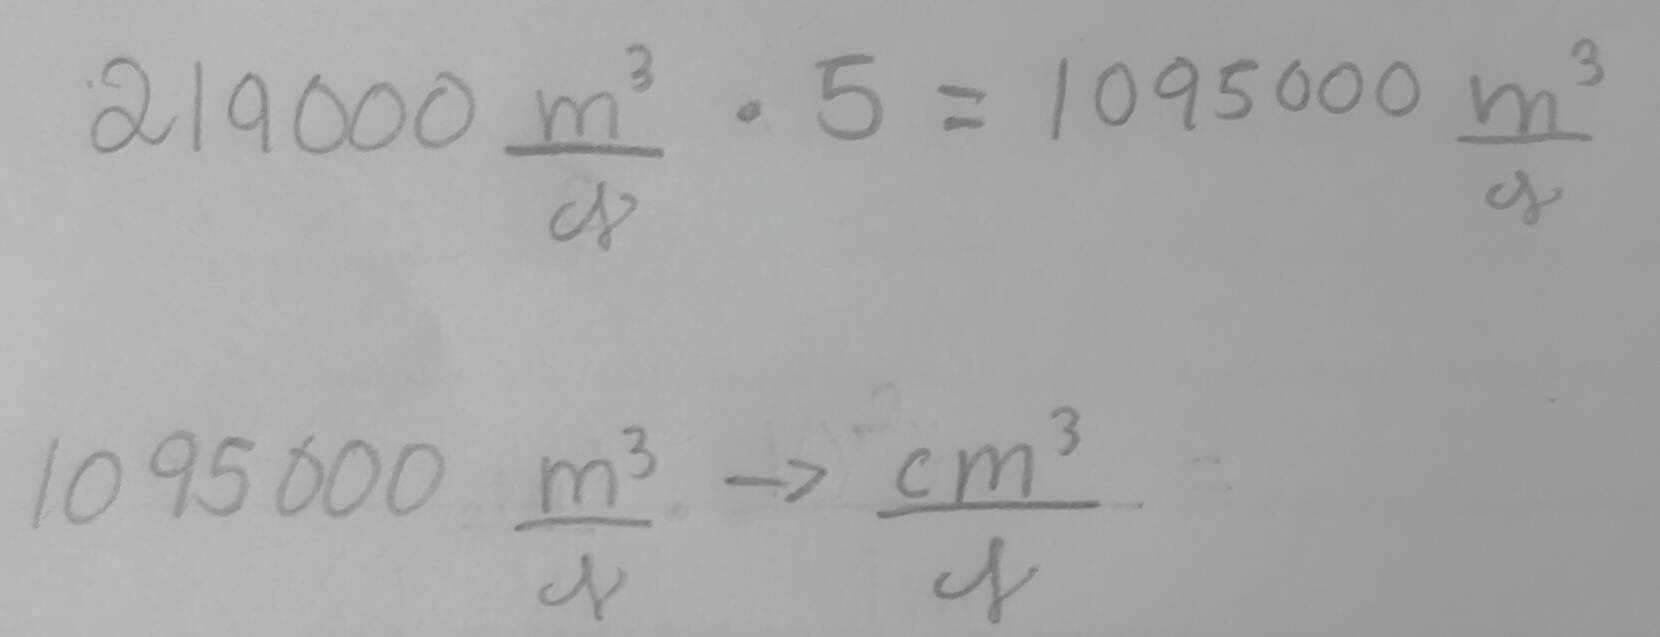 219000 m³/s · 5 = 1095000 m³/s
1095000 m³/s → cm³/s